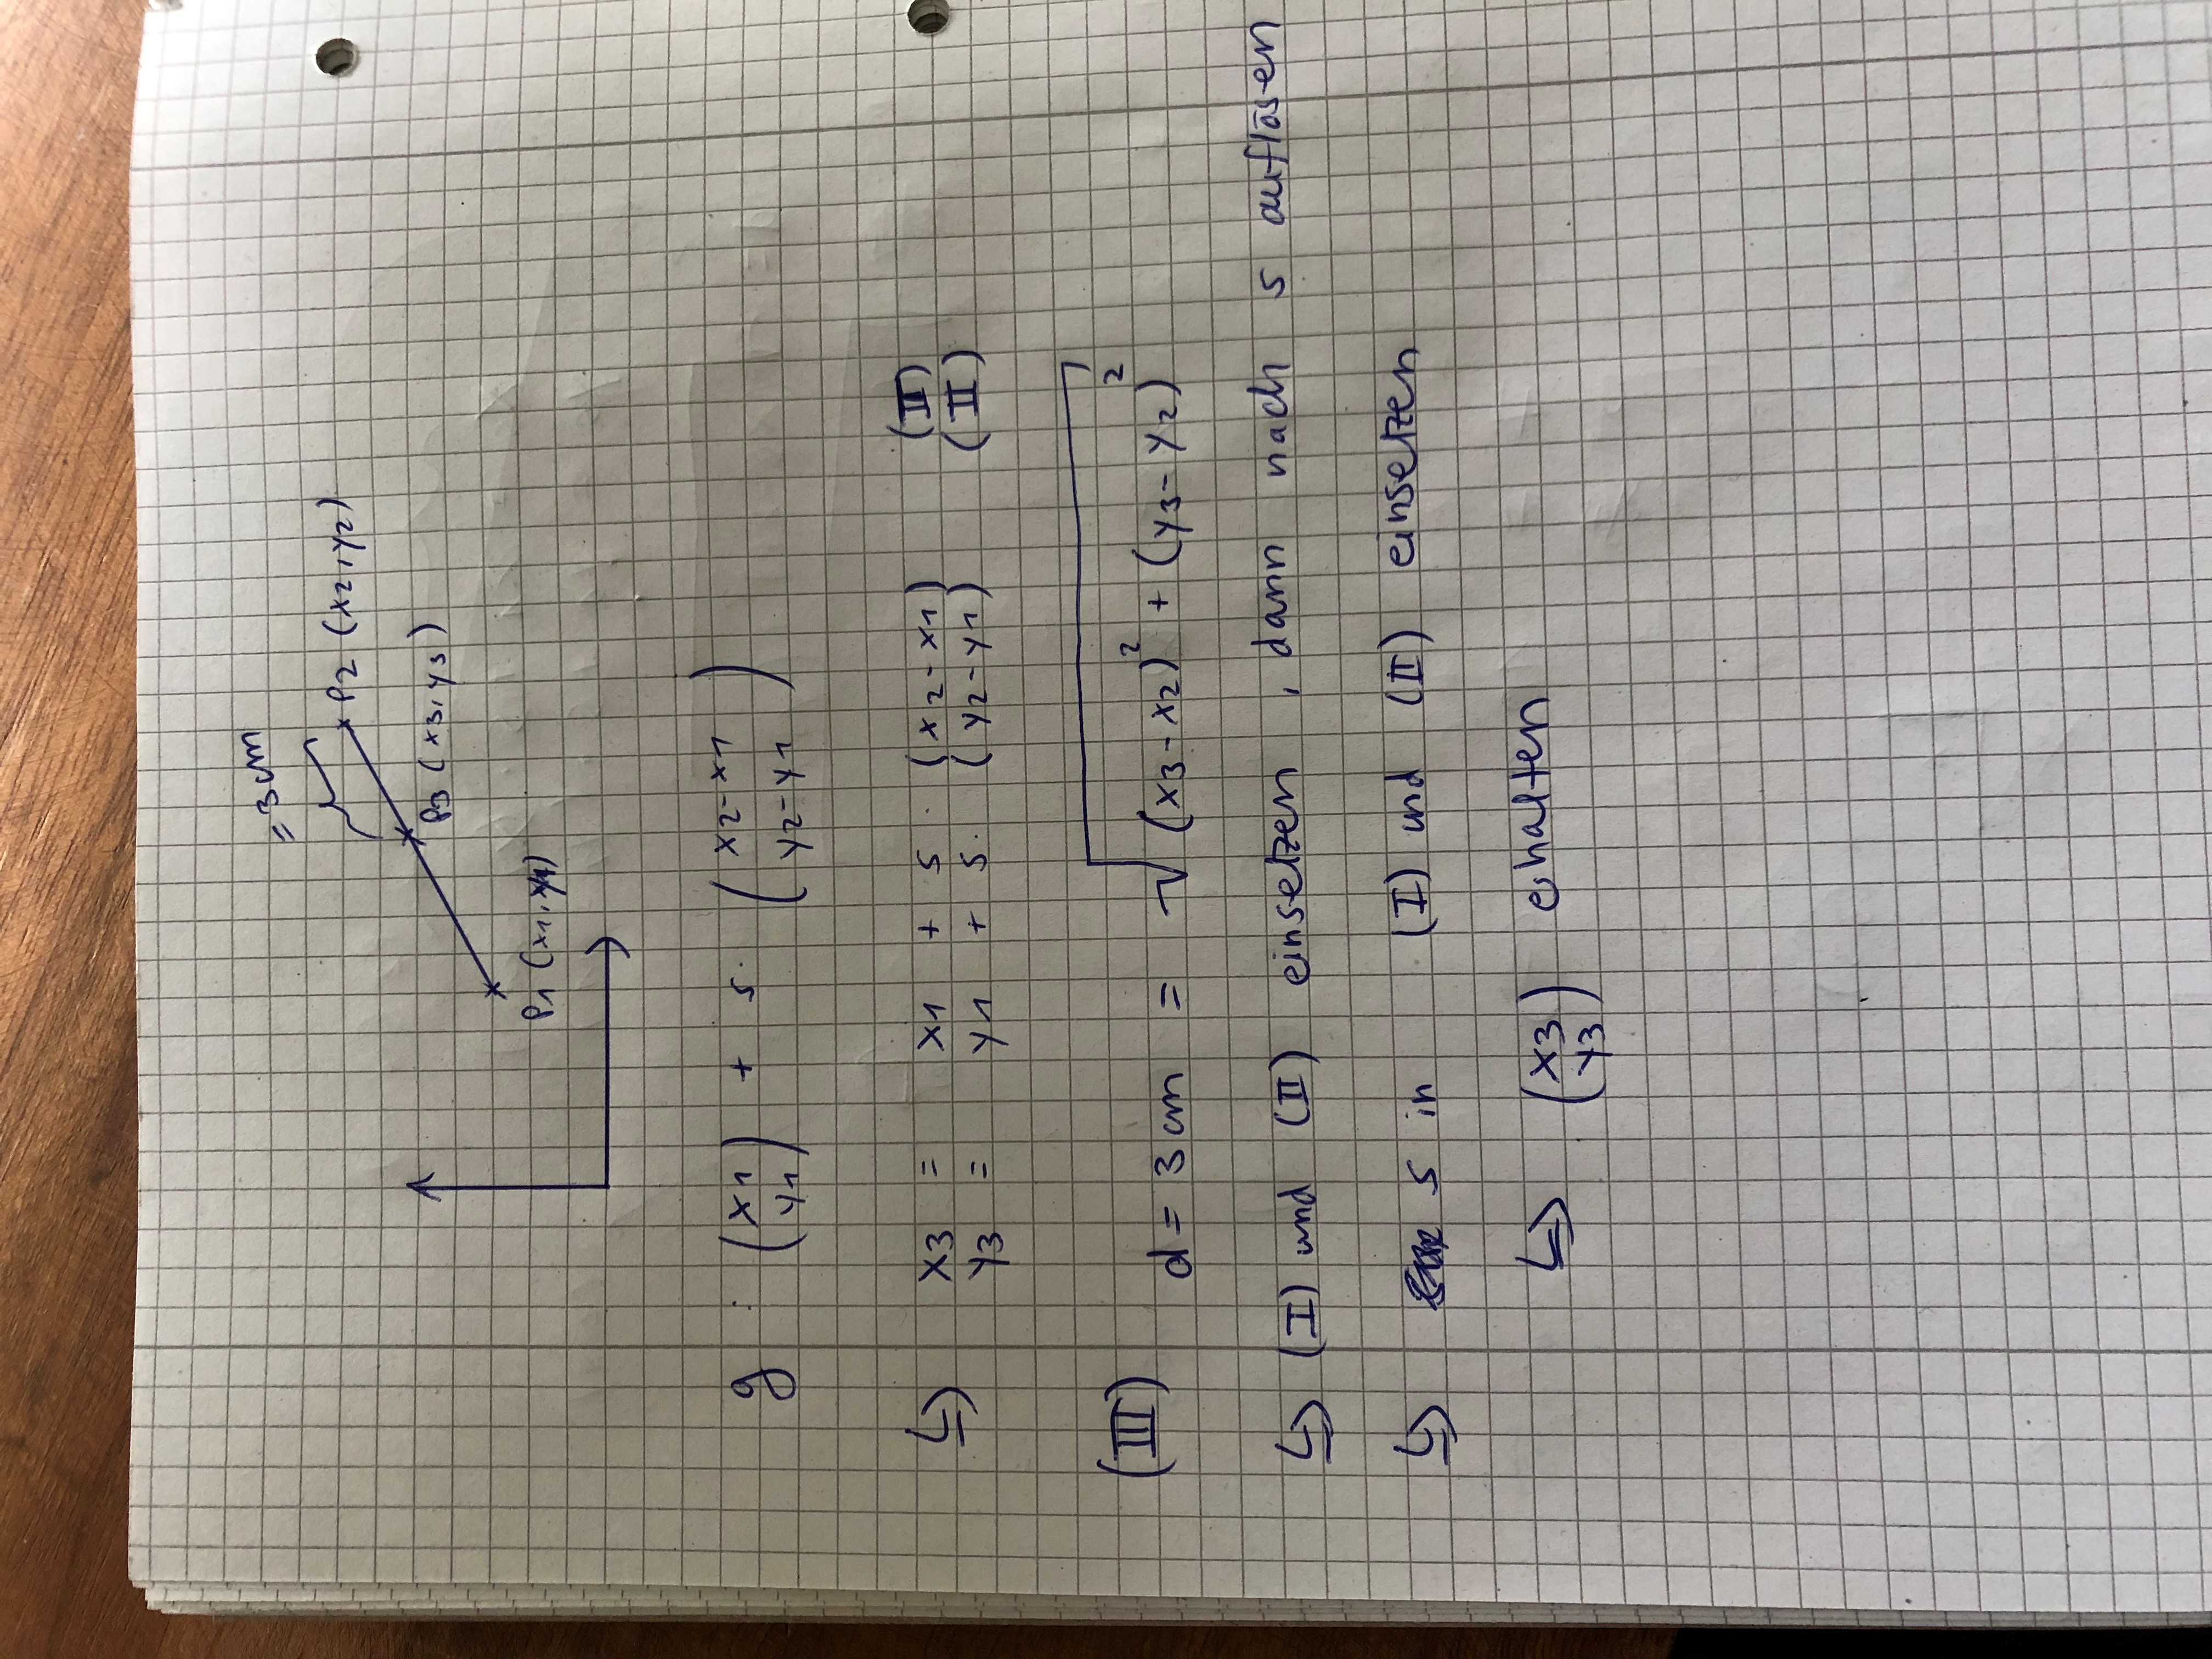 = 3 cm
P2 (x2, y2)
P3 (x3, y3)
P1 (x1, y1)
g : (x1 y1) + s · (x2-x1 y2-y1)
↳ x3 = x1 + s · (x2-x1) (II)
y3 = y1 + s · (y2-y1) (II)
(III) d = 3 cm = √(x3-x2)² + (y3-y2)²
↳ (I) und (II) einsetzen , dann nach s auflösen
↳ s in (I) und (II) einsetzen
↳ (x3 y3) erhalten